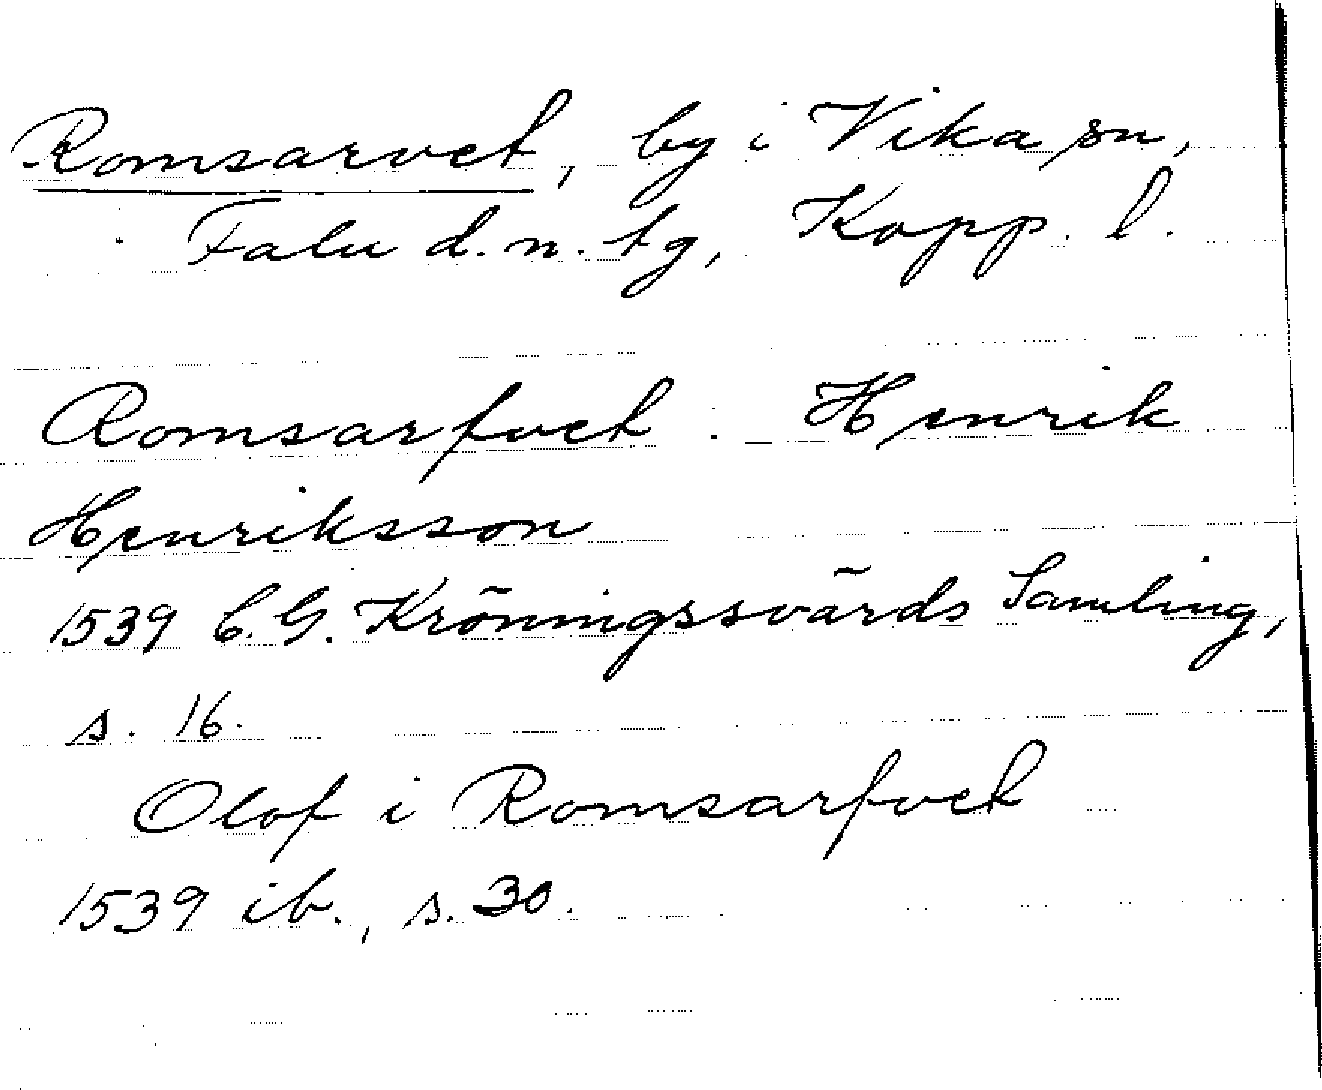 Romsarvet, by i Vika sn,
Falu d.n. tg, Kopp. l.
Romsarfvet : Henrik
Henriksson
1539 C.G. Kröningssvärds Samling,
s. 16.
Olof i Romsarfvet
1539 ib., s. 30.